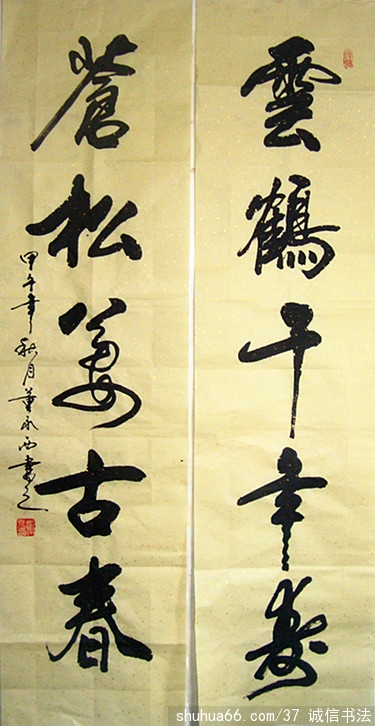 雲鶴千年壽
蒼松萬古春
甲午年秋月董永西書之
shuhua66.com/37 诚信书法